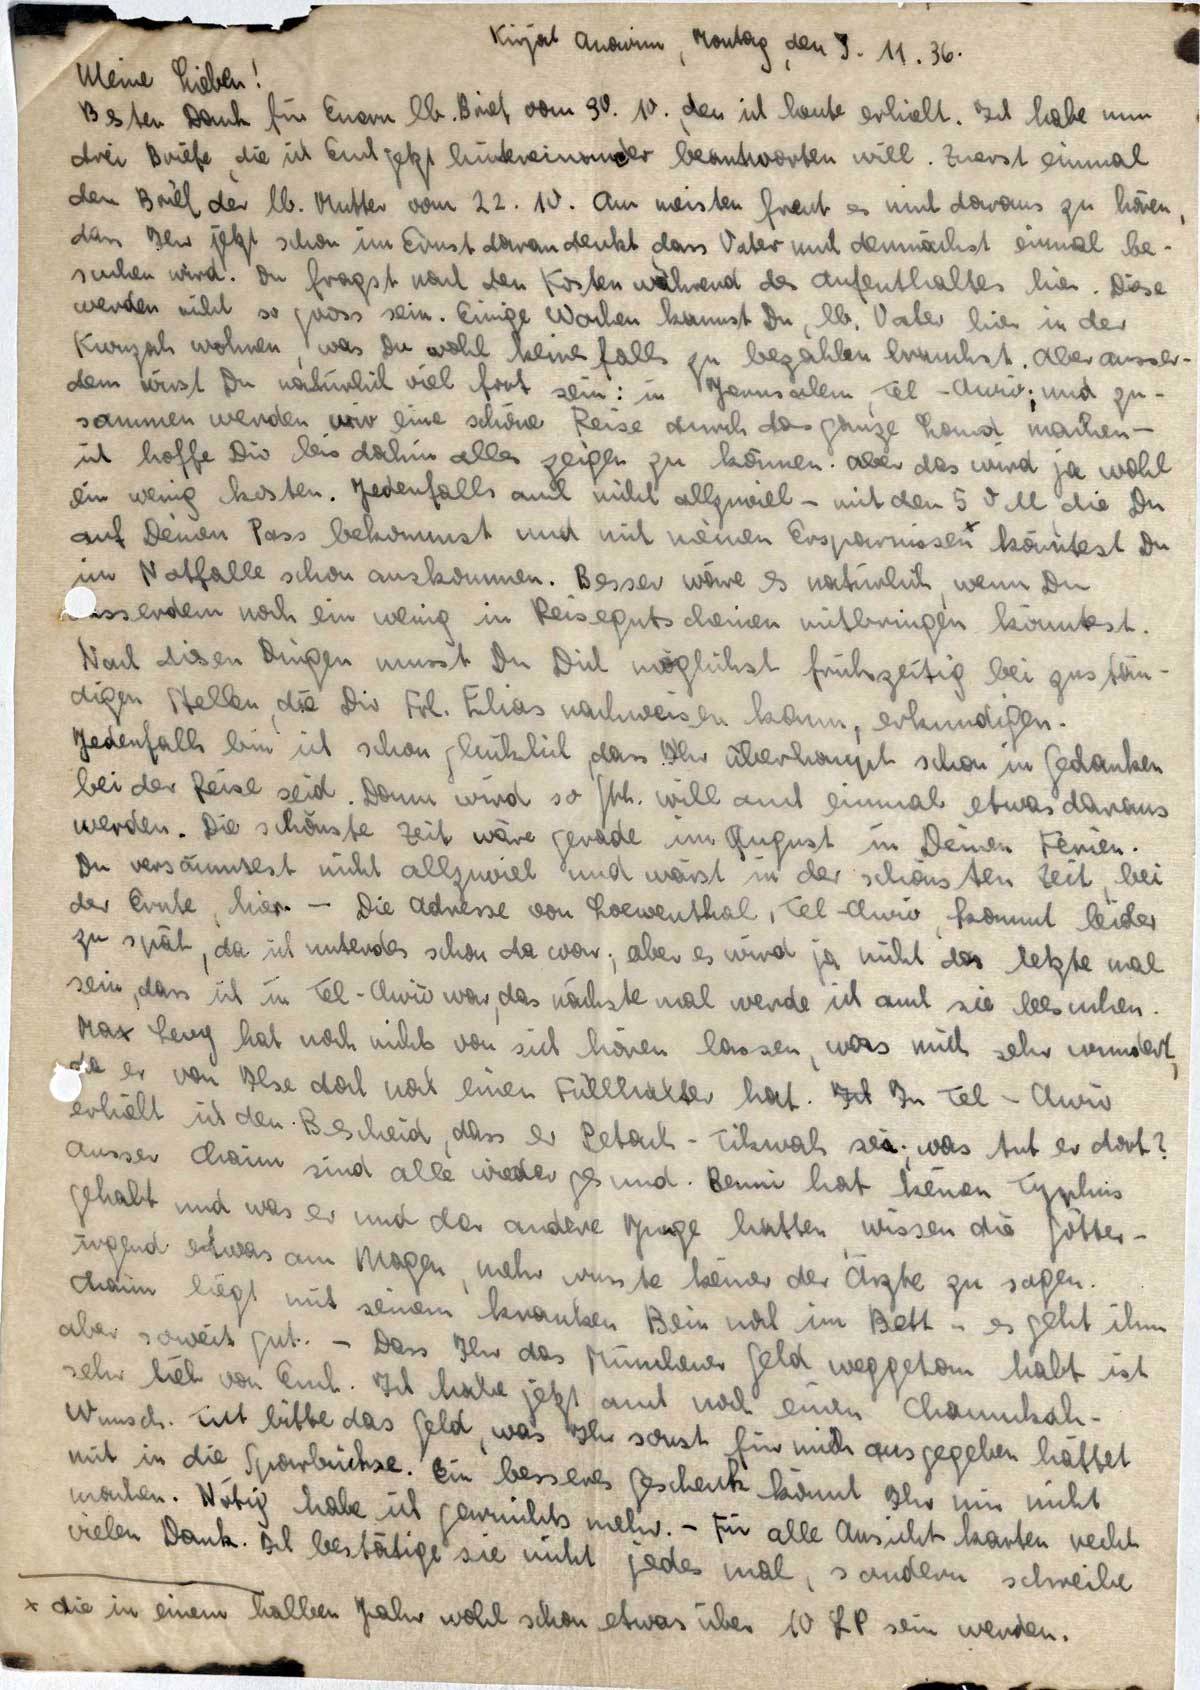 Kirjat Anavim, Montag, den 9. 11. 36.
Meine Lieben!
Besten Dank für Euern lb. Brief vom 30. 10., den ich heute erhielt. Ich habe nun
drei Briefe, die ich Euch jetzt hintereinander beantworten will. Zuerst einmal
den Brief der lb. Mutter vom 22. 10. Am meisten freut es mich daraus zu hören,
dass Ihr jetzt schon im Ernst daran denkt, dass Vater mich demnächst einmal be-
suchen wird. Du fragst nach den Kosten während des Aufenthaltes hier. Diese
werden nicht so gross sein. Einige Wochen kannst Du, lb. Vater hier in der
Kwuzah wohnen, was Du wohl keinesfalls zu bezahlen brauchst. Aber ausser-
dem wirst Du natürlich viel fort sein: in Jerusalem, Tel-Awiw; und zu-
sammen werden wir eine schöne Reise durch das ganze Land machen -
ich hoffe Dir bis dahin alles zeigen zu können. Aber das wird ja wohl
ein wenig kosten. Jedenfalls auch nicht allzuviel - mit den 50 M, die Du
auf Deinen Pass bekommst und mit meinen Ersparnissen x könntest Du
im Notfalle schon auskommen. Besser wäre es natürlich, wenn Du
ausserdem noch ein wenig in Reisegutscheinen mitbringen könntest.
Nach diesen Dingen musst Du Dich möglichst frühzeitig bei zustän-
digen Stellen, die Dir Frl. Elias nachweisen kann, erkundigen.
Jedenfalls bin ich schon glücklich, dass Ihr überhaupt schon in Gedanken
bei der Reise seid. Dann wird so G'tt. will auch einmal etwas daraus
werden. Die schönste Zeit wäre gerade im August in Deinen Ferien.
Du versäumtest nicht allzuviel und wärst in der schönsten Zeit, bei
der Ernte, hier. - Die Adresse von Loewenthal, Tel-Awiw, kommt leider
zu spät, da ich unterdes schon da war; aber es wird ja nicht das letzte mal
sein, dass ich in Tel-Awiw war, das nächste mal werde ich auch sie besuchen.
Max Levy hat noch nichts von sich hören lassen, was mich sehr wundert,
da er von Ilse doch noch einen Füllhalter hat. Ich In Tel-Awiw
erhielt ich den Bescheid, dass er Petach-Tikwah sei; was tut er dort?
Ausser Chaim sind alle wieder gesund. Benni hat keinen Typhus
gehabt und was er und der andere Junge hatten, wissen die Götter -
irgend etwas am Magen, mehr wusste keiner der Ärzte zu sagen.
Chaim liegt mit seinem kranken Bein noch im Bett - es geht ihm
aber soweit gut. - Dass Ihr das Münchener Geld weggetan habt ist
sehr lieb von Euch. Ich habe jetzt auch noch einen Chanukah-
Wunsch. Tut bitte das Geld, was Ihr sonst für mich ausgegeben hättet
mit in die Sparbüchse. Ein besseres Geschenk könnt Ihr mir nicht
machen. Nötig habe ich garnichts mehr. - Für alle Ansichtkarten recht
vielen Dank. Ich bestätige sie nicht jedes mal, sondern schreibe
x die in einem halben Jahr wohl schon etwas über 10 LP sein werden.